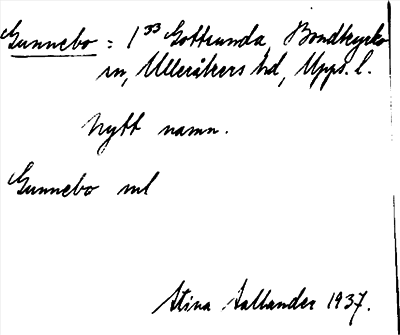 Gunnebo : 1³³ Gottsunda, Bondkyrko
sn, Ulleråkers hd, Upps. l.
Nytt namn.
Gunnebo ml
Stina Sallander 1937.